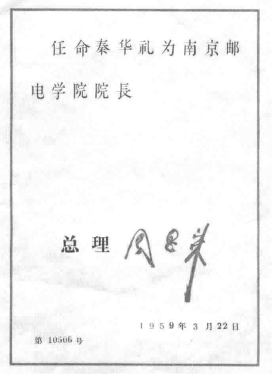 任命秦华礼为南京邮
电学院院長
总理 周恩来
1959年3月22日
第 10506 号